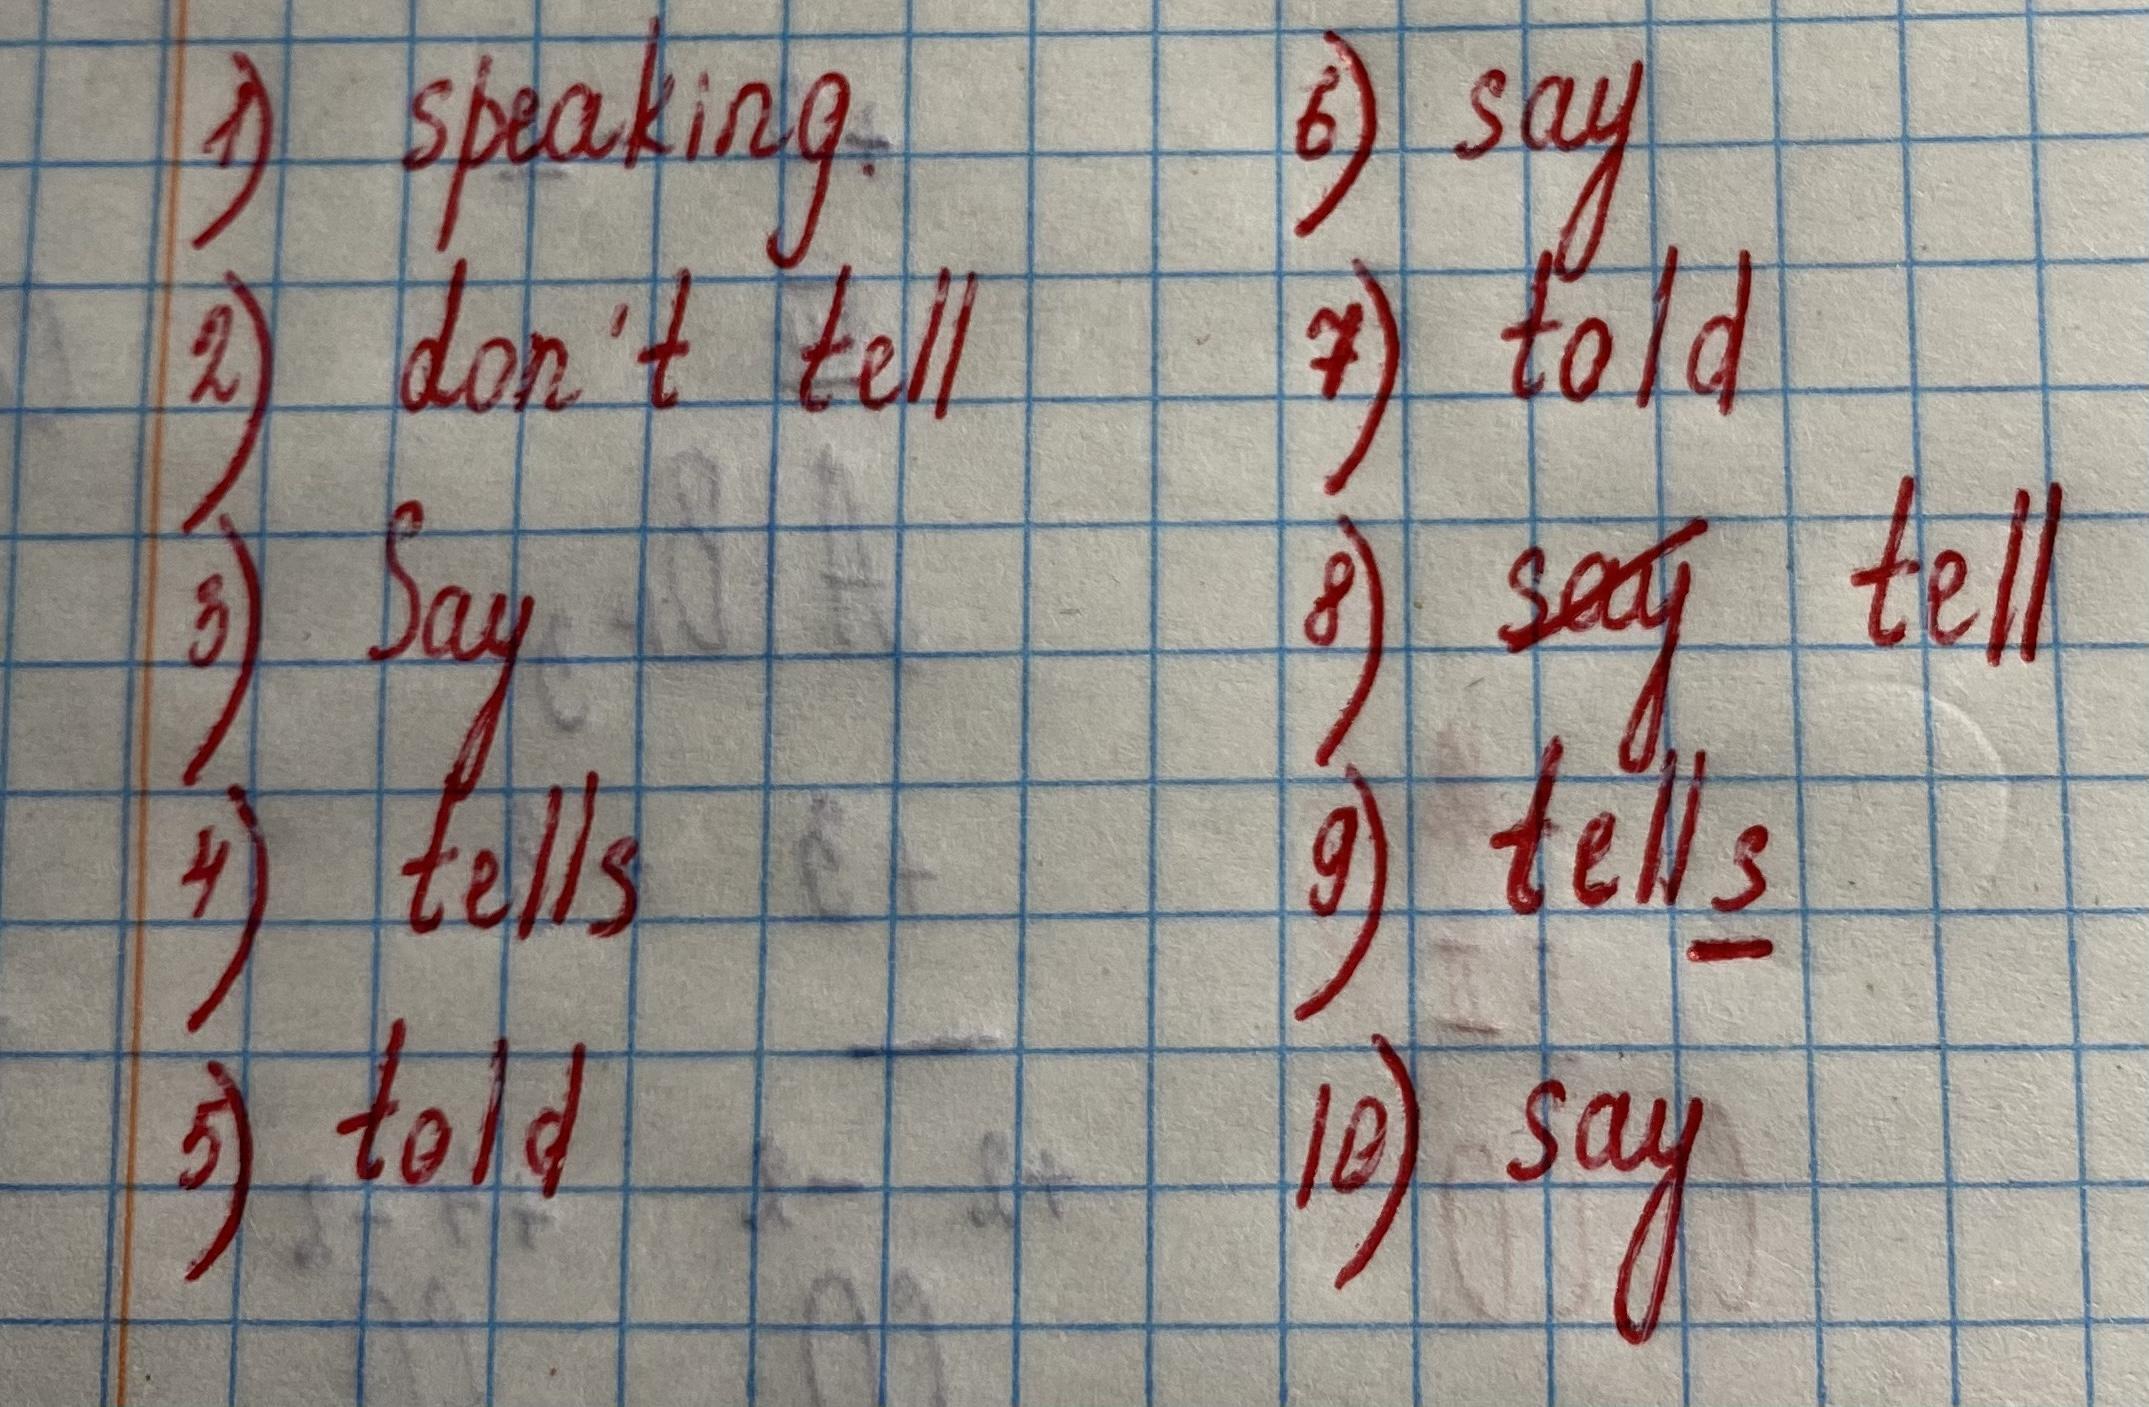 1) speaking.
2) don't tell
3) Say
4) tells
5) told
6) say
7) told
8) say tell
9) tells
10) say